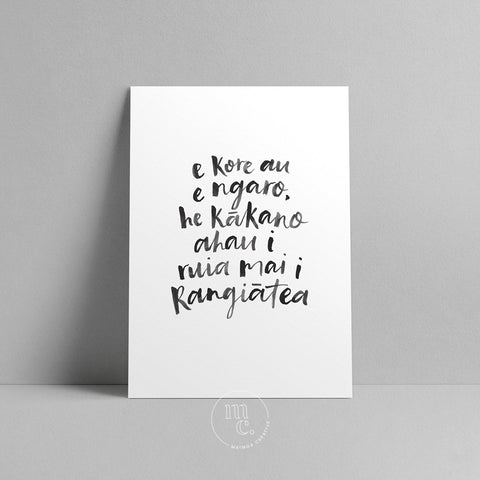 e Kore au
e ngaro,
he Kākano
ahau i
ruia mai i
Rangiātea
mc.
MAIMOA CREATIVE